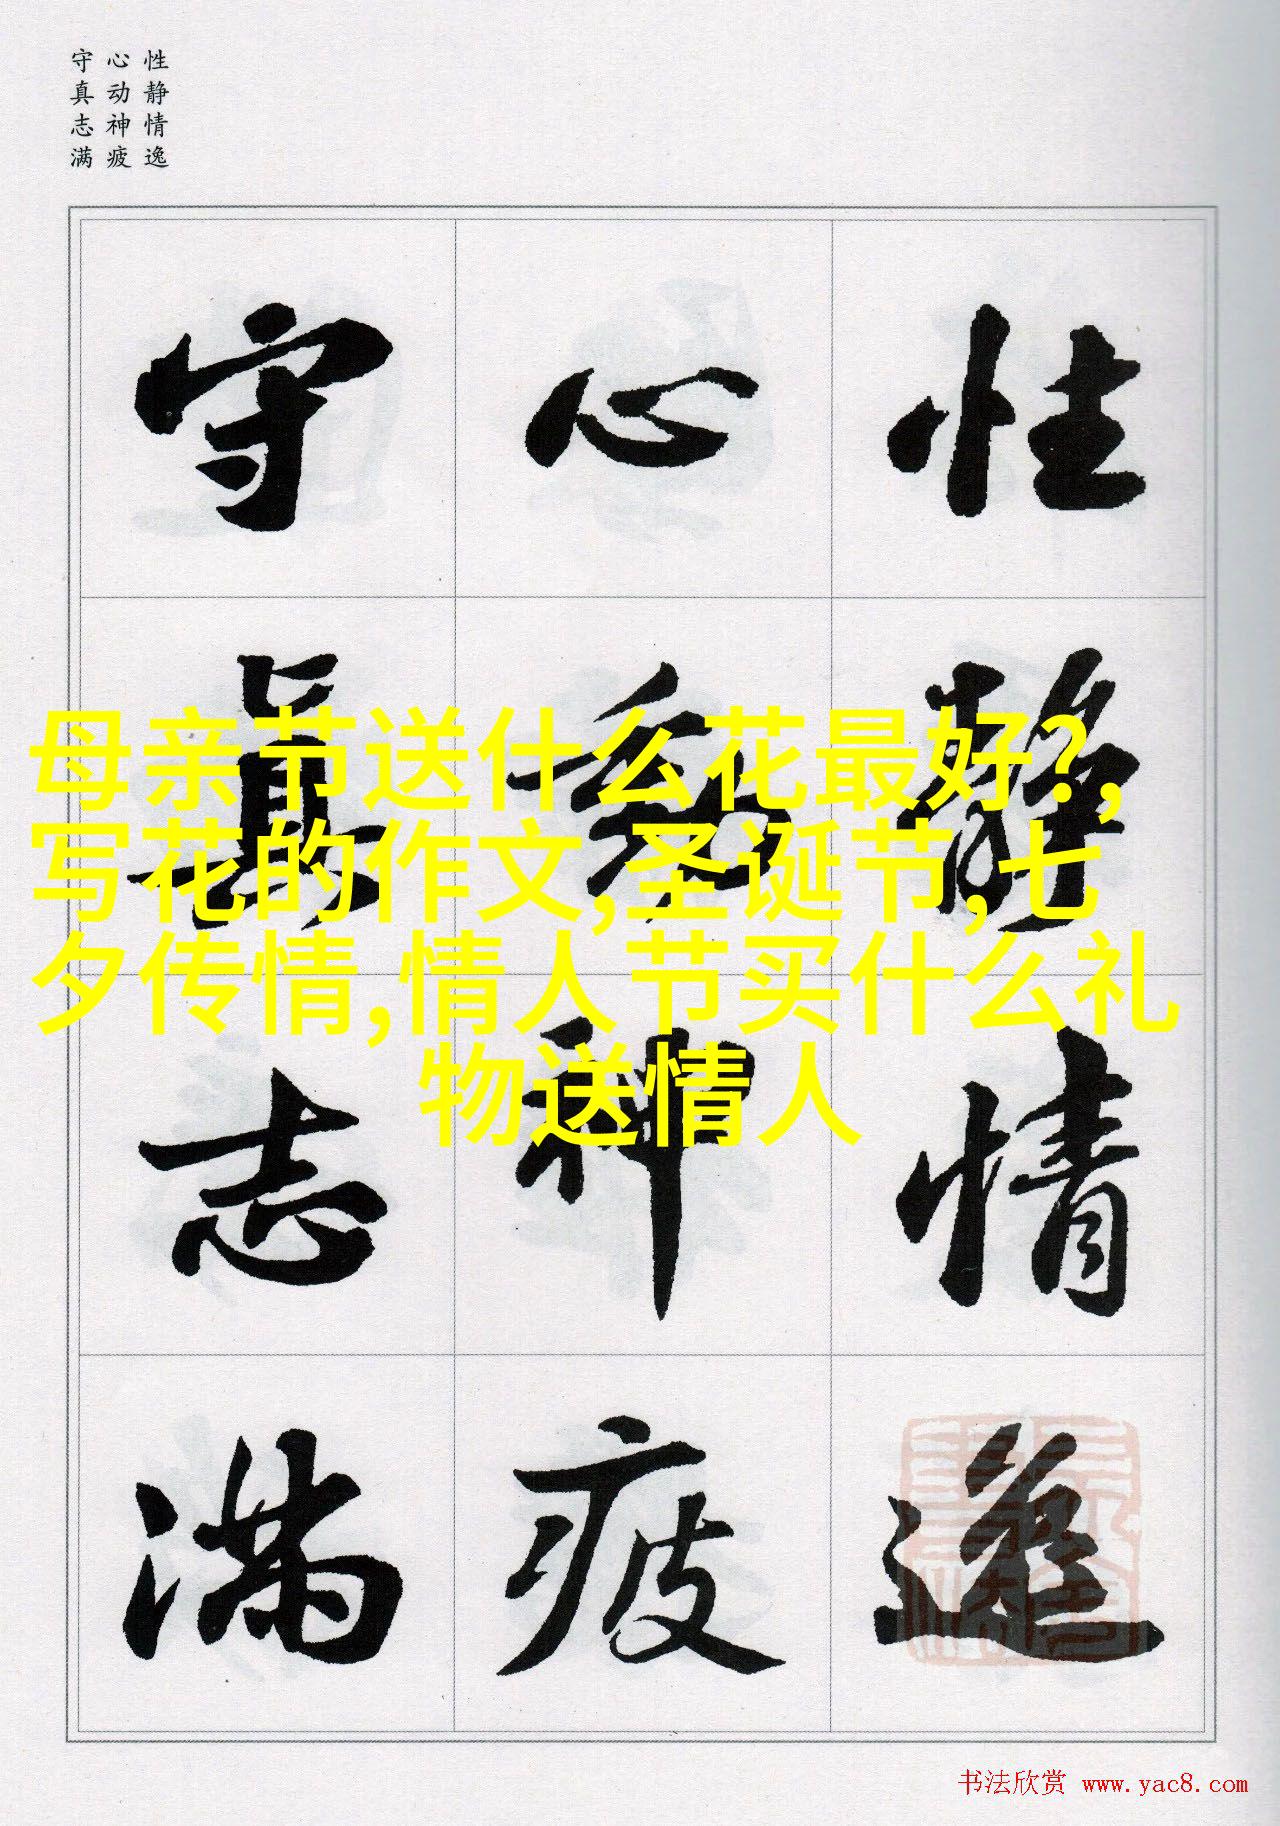 性静情逸
心动神疲
守真志满
性静情逸
心動神疲
守真志满
母亲节送什么花最好?,
写花的作文,圣诞节,七
夕传情,情人节买什么礼
物送情人
书法欣赏 www.yac8.com